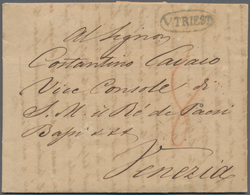 V. TRIEST
Al Signor
Costantino Cavaco
Vice Console di
S. M. il Ré de Paesi
Bassi
Venezia